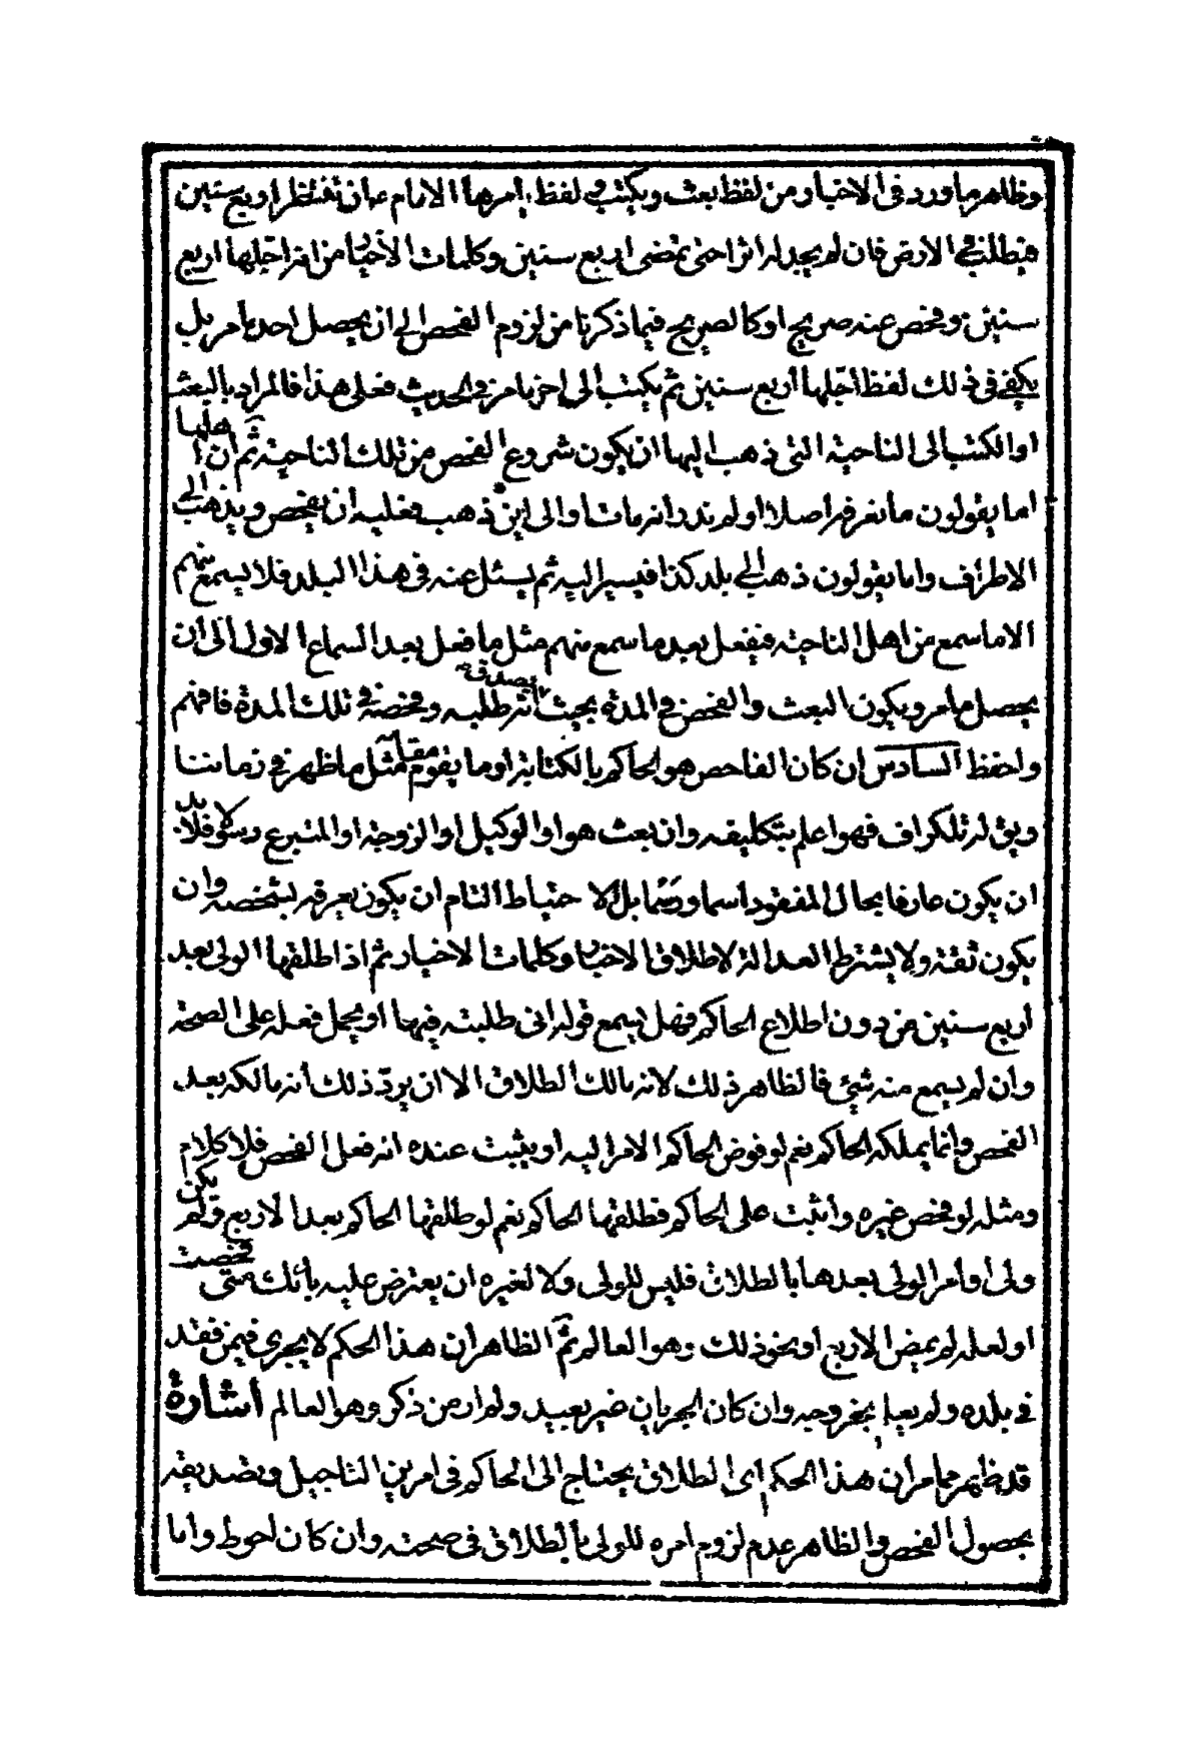 وظاهر ما ورد فی الاخبار من لفظ بعث ویکتب و لفظ یامرها الامام ان تنتظر اربع سنین
فیطلب فی الارض فان لم یجد له اثرا حتی تمضی اربع سنین وکلمات الاخیار من انه اجّلها اربع
سنین وفحص عنه صریح او کالصریح فیما ذکرنا من لزوم الفحص الی ان یحصل احد ما مر بل
یکفی فی ذلک لفظ اجّلها اربع سنین ثم یکتب الی اخر ما مر فی الحدیث فعلی هذا فالمراد بالبعث
او الکتب الی الناحیة التی ذهب الیها ان یکون شروع الفحص من تلک الناحیة ثمّ ان اهلها
اما یقولون ما نعرفه اصلا او لم ندر انه مات او الی این ذهب فعلیه ان یفحص ویذهب الی
الاطراف واما یقولون ذهب الی بلد کذا فیسیر الیه ثم یسئل عنه فی هذا البلد فلا یسمع منهم
الا ما سمع من اهل الناحیة فیفعل بعد ما سمع منهم مثل ما فعل بعد السماع الاول الی ان
یحصل ما مر ویکون البعث والفحص فی المدة بحیث یصدق انه طلبه وفحصه فی تلک المدة فافهم
واحفظ السادس ان کان الفاحص هو الحاکم بالکتابة او ما یقوم مقامه مثل ما ظهر فی زماننا
ویق له تلکراف فهو اعلم بتکلیفه وان بعث هو او الوکیل او الزوجة او المتبرع رسولا فلا بد
ان یکون عارفا بحال المفقود اسما ووصفا بل الاحتیاط التام ان یکون یعرفه بشخصه وان
یکون ثقة ولا یشترط العدالة لاطلاق الاخبار وکلمات الاخیار ثم اذا طلقها الولی بعد
اربع سنین من دون اطلاع الحاکم فهل یسمع قوله انی طلبته فیها او یحمل فعله علی الصحة
وان لم یسمع منه شئ فالظاهر ذلک لانه مالک الطلاق الا ان یردّ ذلک انه مالکه بعد
الفحص وانما یملکه الحاکم نعم لو فوض الحاکم الامر الیه او یثبت عنده انه فعل الفحص فلا کلام
ومثله لو فحص غیره واثبت علی الحاکم فطلقها الحاکم نعم لو طلقها الحاکم بعد الاربع ولم یکن
ولی او امر الولی بعدها بالطلاق فلیس للولی ولا لغیره ان یعترض علیه بانّک متی فحصت
او لعله لم یمض الاربع او نحو ذلک وهو العالم ثمّ الظاهر ان هذا الحکم لا یجری فیمن فقد
فی بلده ولم یعلم بخروجه وان کان الجریان غیر بعید ولم ار من ذکر وهو العالم اشارة
قد ظهر مما مر ان هذا الحکم ای الطلاق یحتاج الی الحاکم فی امرین التاجیل وتصدیقه
بحصول الفحص والظاهر عدم لزوم امره للولی بالطلاق فی صحته وان کان احوط واما